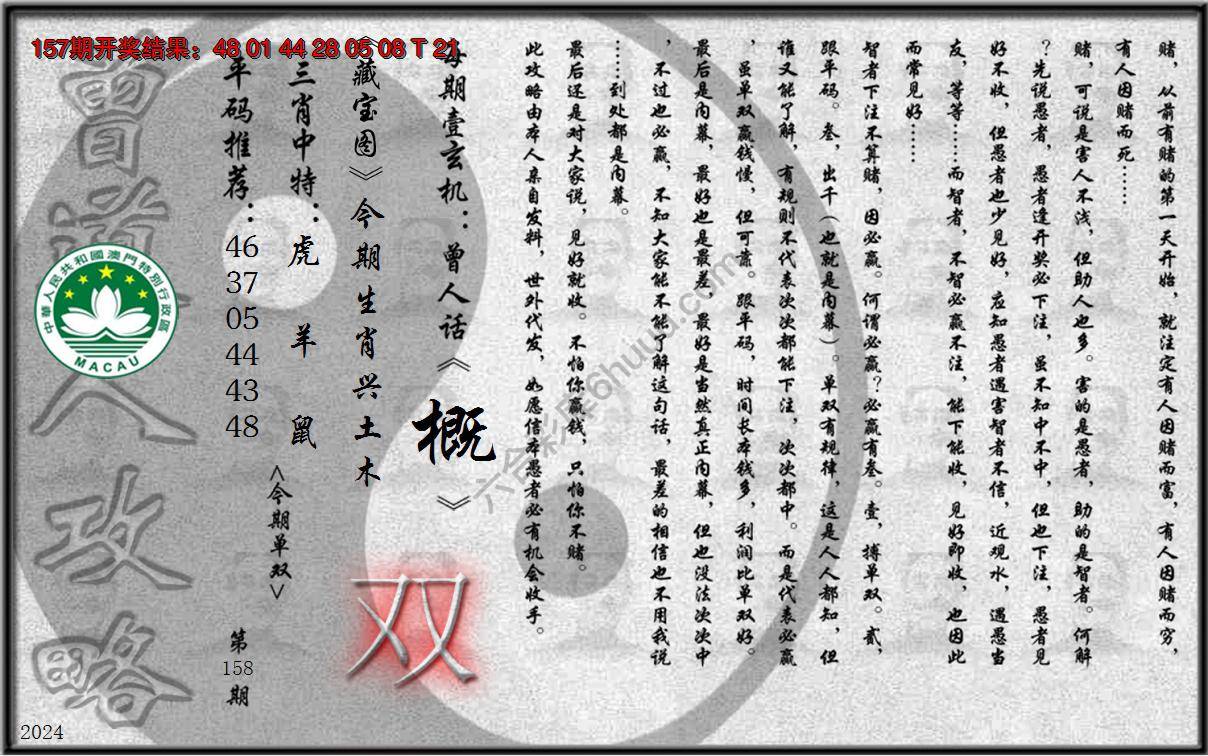 157期开奖结果：48 01 44 28 05 08 T 21
赌，从前有赌的第一天开始，就注定有人因赌而富，有人因赌而穷，
有人因赌而死……
赌，可说是害人不浅，但助人也多。害的是愚者，助的是智者。何解
？先说愚者，愚者逢开奖必下注，虽不知中不中，但也下注，愚者见
好不收，但愚者也少见好，应知愚者遇害智者不信，近观水，遇愚当
友，等等……而智者，不智必赢不注，能下能收，见好即收，也因此
而常见好……
智者下注不算赌，因必赢。何谓必赢？必赢有叁。壹，搏单双。贰，
跟平码。叁，出千（也就是内幕）。单双有规律，这是人人都知，但
谁又能了解，有规则不代表次次都能下注，次次都中。而是代表必赢
，虽单双赢钱慢，但可靠。跟平码，时间长本钱多，利润比单双好。
最后是内幕，最好也是最差，最好是当然真正内幕，但也没法次次中
，不过也必赢，不知大家能不能了解这句话，最差的相信也不用我说
……到处都是内幕。
最后还是对大家说，见好就收。不怕你赢钱，只怕你不赌。
此攻略由本人亲自发料，世外代发，如愿信本愚者必有机会收手。
每期壹玄机：曾人话《概》
《藏宝图》今期生肖兴土木
双
三肖中特：虎 羊 鼠
<今期单双>
平码推荐：
46
37
05
44
43
48
第
158
期
曾道人攻略
中華人民共和國澳門特別行政區
MACAU
2024